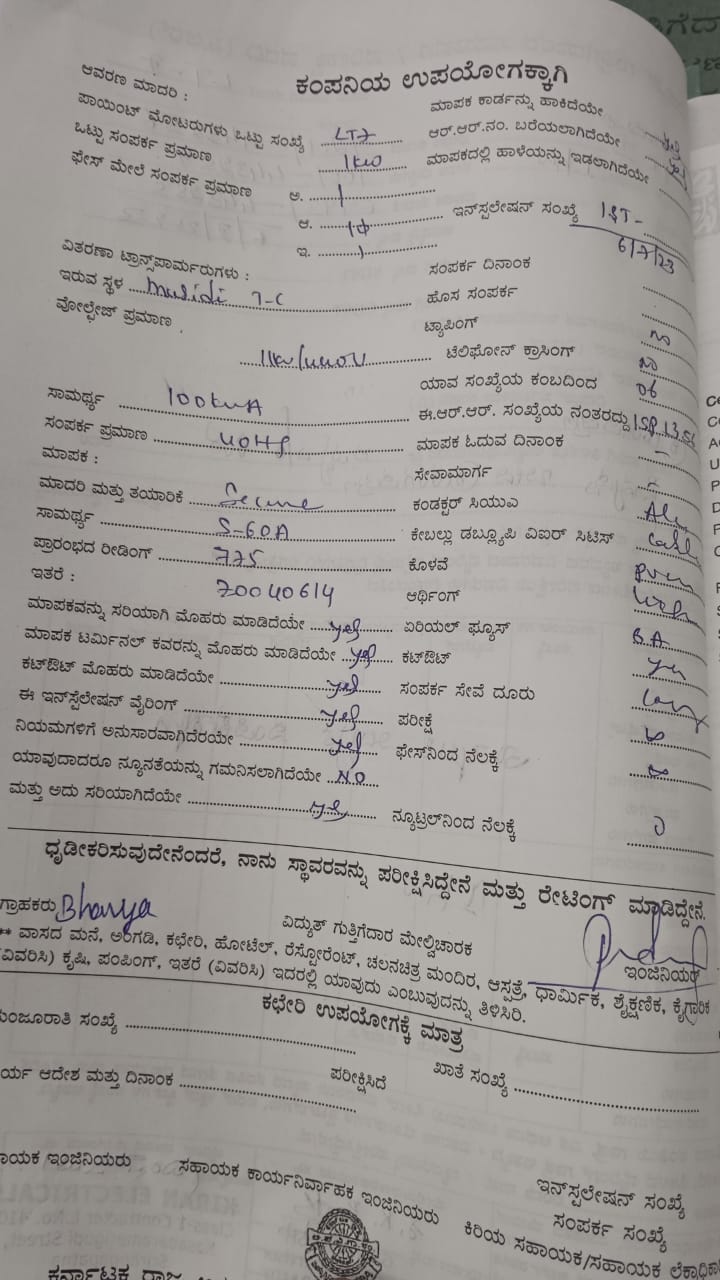 ಕಂಪನಿಯ ಉಪಯೋಗಕ್ಕಾಗಿ
ಆವರಣ ಮಾದರಿ : ಮಾಪಕ ಕಾರ್ಡನ್ನು ಹಾಕಿದೆಯೇ yes
ಪಾಯಿಂಟ್ ಮೋಟರುಗಳು ಒಟ್ಟು ಸಂಖ್ಯೆ LT7 ಆರ್.ಆರ್.ನಂ. ಬರೆಯಲಾಗಿದೆಯೇ yes
ಒಟ್ಟು ಸಂಪರ್ಕ ಪ್ರಮಾಣ 1KW ಮಾಪಕದಲ್ಲಿ ಹಾಳೆಯನ್ನು ಇಡಲಾಗಿದೆಯೇ
ಫೇಸ್ ಮೇಲೆ ಸಂಪರ್ಕ ಪ್ರಮಾಣ ಅ. 1
ಆ. 1ф ಇನ್‌ಸ್ಪಲೇಷನ್ ಸಂಖ್ಯೆ 1ST-
ಇ. 1 6/7/23
ವಿತರಣಾ ಟ್ರಾನ್ಸ್‌ಪಾರ್ಮರುಗಳು : ಸಂಪರ್ಕ ದಿನಾಂಕ
ಇರುವ ಸ್ಥಳ T-C ಹೊಸ ಸಂಪರ್ಕ
ವೋಲ್ಟೇಜ್ ಪ್ರಮಾಣ 11KV/440V ಟ್ಯಾಪಿಂಗ್ no
ಟೆಲಿಫೋನ್ ಕ್ರಾಸಿಂಗ್ no
ಸಾಮರ್ಥ್ಯ 100KVA ಯಾವ ಸಂಖ್ಯೆಯ ಕಂಬದಿಂದ 06
ಸಂಪರ್ಕ ಪ್ರಮಾಣ 40HP ಈ.ಆರ್.ಆರ್. ಸಂಖ್ಯೆಯ ನಂತರದ್ದು
ಮಾಪಕ : ಮಾಪಕ ಓದುವ ದಿನಾಂಕ -
ಮಾದರಿ ಮತ್ತು ತಯಾರಿಕೆ Secure ಸೇವಾಮಾರ್ಗ -
ಸಾಮರ್ಥ್ಯ 5-60A ಕಂಡಕ್ಟರ್ ಸಿಯುವಿ
ಪ್ರಾರಂಭದ ರೀಡಿಂಗ್ 775 ಕೇಬಲ್ಲು ಡಬ್ಲ್ಯೂಪಿ ವಿಐರ್ ಸಿಟಿಸ್
ಇತರೆ : 70040614 ಕೊಳವೆ
ಆರ್ಥಿಂಗ್
ಮಾಪಕವನ್ನು ಸರಿಯಾಗಿ ಮೊಹರು ಮಾಡಿದೆಯೇ yes ಏರಿಯಲ್ ಫ್ಯೂಸ್ B.A
ಮಾಪಕ ಟರ್ಮಿನಲ್ ಕವರನ್ನು ಮೊಹರು ಮಾಡಿದೆಯೇ yes ಕಟ್‌ಔಟ್ yes
ಕಟ್‌ಔಟ್ ಮೊಹರು ಮಾಡಿದೆಯೇ yes ಸಂಪರ್ಕ ಸೇವೆ ದೂರು
ಈ ಇನ್‌ಸ್ಪೆಲೇಷನ್ ವೈರಿಂಗ್ yes ಪರೀಕ್ಷೆ
ನಿಯಮಗಳಿಗೆ ಅನುಸಾರವಾಗಿದೆರಯೇ yes ಫೇಸ್‌ನಿಂದ ನೆಲಕ್ಕೆ
ಯಾವುದಾದರೂ ನ್ಯೂನತೆಯನ್ನು ಗಮನಿಸಲಾಗಿದೆಯೇ NO
ಮತ್ತು ಅದು ಸರಿಯಾಗಿದೆಯೇ yes ನ್ಯೂಟ್ರಲ್‌ನಿಂದ ನೆಲಕ್ಕೆ
ಧೃಡೀಕರಿಸುವುದೇನೆಂದರೆ, ನಾನು ಸ್ಥಾವರವನ್ನು ಪರೀಕ್ಷಿಸಿದ್ದೇನೆ ಮತ್ತು ರೇಟಿಂಗ್ ಮಾಡಿದ್ದೇನೆ.
ಗ್ರಾಹಕರು Bhavya ವಿದ್ಯುತ್ ಗುತ್ತಿಗೆದಾರ ಮೇಲ್ವಿಚಾರಕ ಇಂಜಿನಿಯರ್
** ವಾಸದ ಮನೆ, ಅಂಗಡಿ, ಕಛೇರಿ, ಹೋಟೆಲ್, ರೆಸ್ಟೋರೆಂಟ್, ಚಲನಚಿತ್ರ ಮಂದಿರ, ಆಸ್ಪತ್ರೆ, ಧಾರ್ಮಿಕ, ಶೈಕ್ಷಣಿಕ, ಕೈಗಾರಿಕ
(ವಿವರಿಸಿ) ಕೃಷಿ, ಪಂಪಿಂಗ್, ಇತರೆ (ವಿವರಿಸಿ) ಇದರಲ್ಲಿ ಯಾವುದು ಎಂಬುವುದನ್ನು ತಿಳಿಸಿರಿ.
ಕಛೇರಿ ಉಪಯೋಗಕ್ಕೆ ಮಾತ್ರ
ಮಂಜೂರಾತಿ ಸಂಖ್ಯೆ ಖಾತೆ ಸಂಖ್ಯೆ
ರ್ಯ ಆದೇಶ ಮತ್ತು ದಿನಾಂಕ ಪರೀಕ್ಷಿಸಿದೆ
ಾಯಕ ಇಂಜಿನಿಯರು ಸಹಾಯಕ ಕಾರ್ಯನಿರ್ವಾಹಕ ಇಂಜಿನಿಯರು ಇನ್‌ಸ್ಪಲೇಷನ್ ಸಂಖ್ಯೆ
ಸಂಪರ್ಕ ಸಂಖ್ಯೆ
ಕಿರಿಯ ಸಹಾಯಕ/ಸಹಾಯಕ ಲೆಕ್ಕಾಧಿಕಾ
ಕರ್ನಾಟಕ ರಾಜ್ಯ